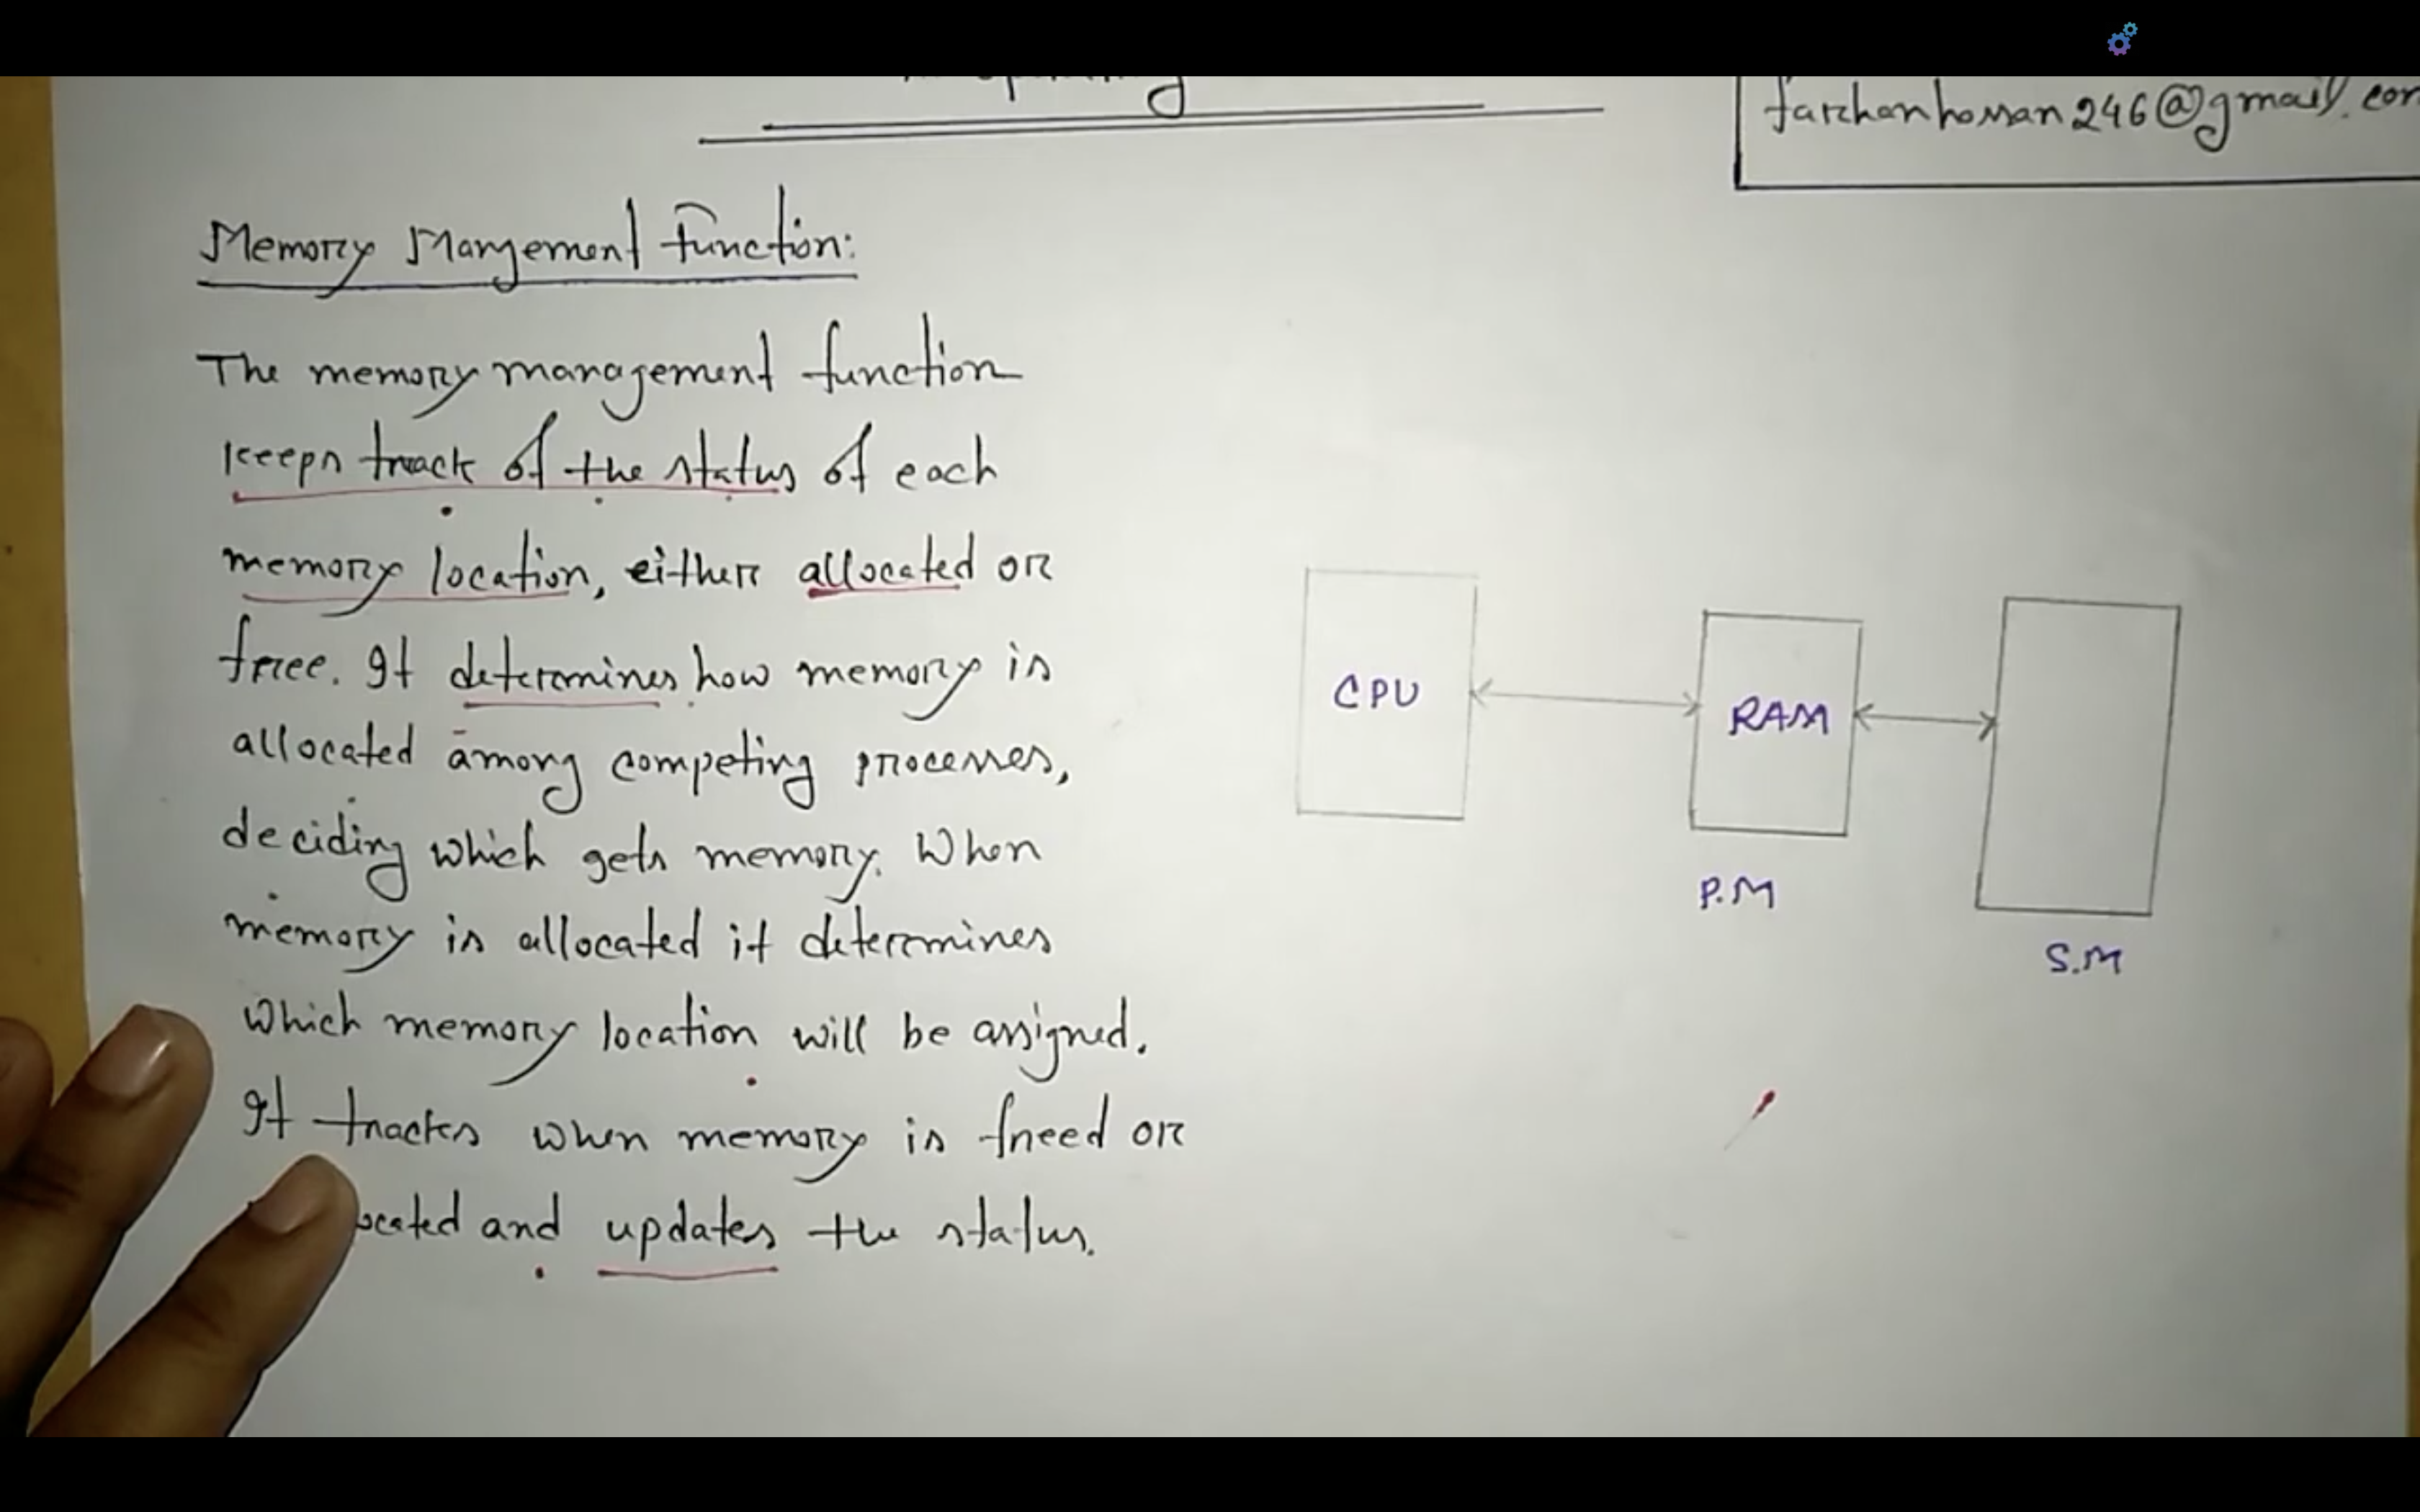 farhanhossan246@gmail.com
Memory Mangement Function:
The memory management function
keeps track of the status of each
memory location, either allocated or
free. It determines how memory is
allocated among competing processes,
deciding which gets memory. When
memory is allocated it determines
which memory location will be assigned.
It tracks when memory is freed or
ocated and updates the status.
CPU
RAM
P.M
S.M